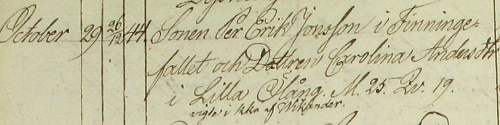 October 29 26/12 44. Sonen Per Erik Jonsson i Finninge-
fallet och Dottren Carolina Andersdtr
i Lilla Slång. M. 25. Qv. 19.
vigde i kka af Wikander.